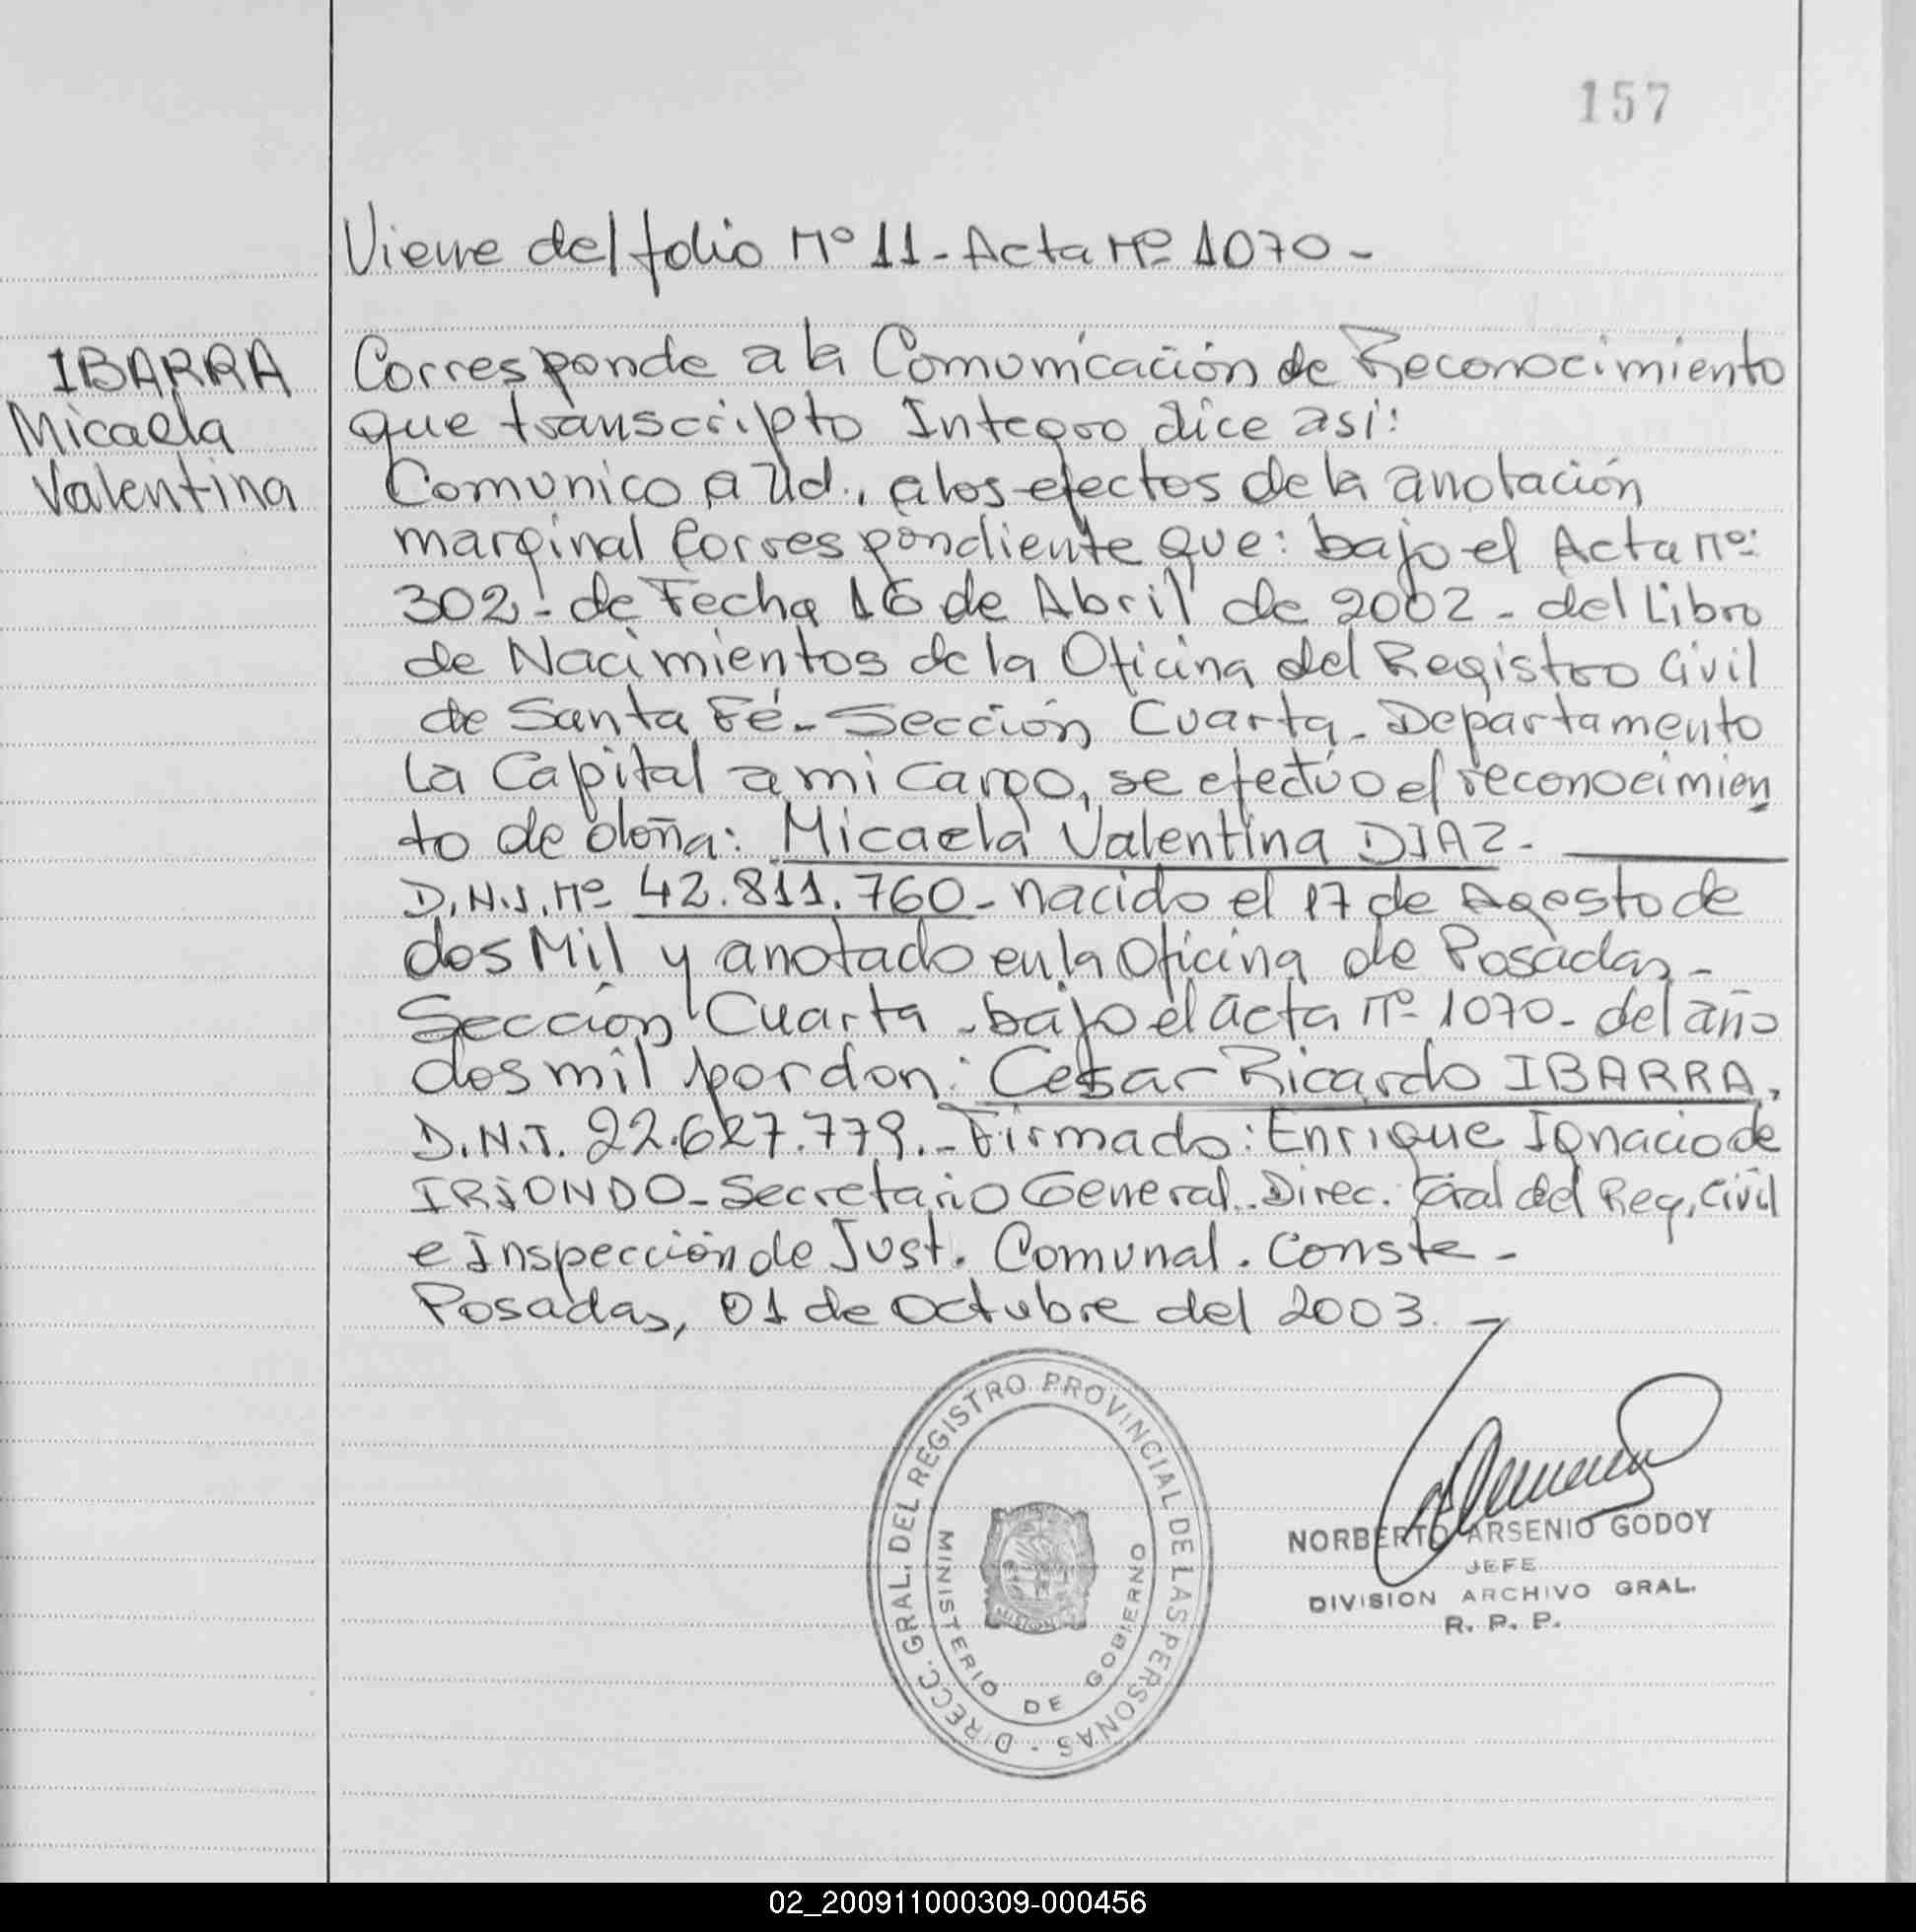 157
Viene del folio Nº 11 - Acta Nº 1070 -
IBARRA
Micaela
Valentina
Corresponde a la Comunicación de Reconocimiento
que transcripto Integro dice asi:
Comunico a Ud., a los efectos de la anotación
marginal Correspondiente que: bajo el Acta nº:
302 - de Fecha 16 de Abril de 2002 - del Libro
de Nacimientos de la Oficina del Registro Civil
de Santa Fé - Sección Cuarta - Departamento
La Capital a mi cargo, se efectúo el reconocimien
to de doña: Micaela Valentina DIAZ. -
D.N.I. Nº 42.811.760 - nacido el 17 de Agosto de
dos Mil y anotado en la Oficina de Posadas -
Sección Cuarta - bajo el acta nº 1070 - del año
dos mil por don: Cesar Ricardo IBARRA,
D.N.I. 22.627.779. - Firmado: Enrique Ignacio de
IRIONDO - Secretario General - Direc. Gral del Reg. Civil
e Inspección de Just. Comunal. Conste -
Posadas, 01 de Octubre del 2003. -
DIRECC. GRAL. DEL REGISTRO PROVINCIAL DE LAS PERSONAS -
MINISTERIO DE GOBIERNO
NORBERTO ARSENIO GODOY
JEFE
DIVISION ARCHIVO GRAL.
R. P. P.
02_200911000309-000456